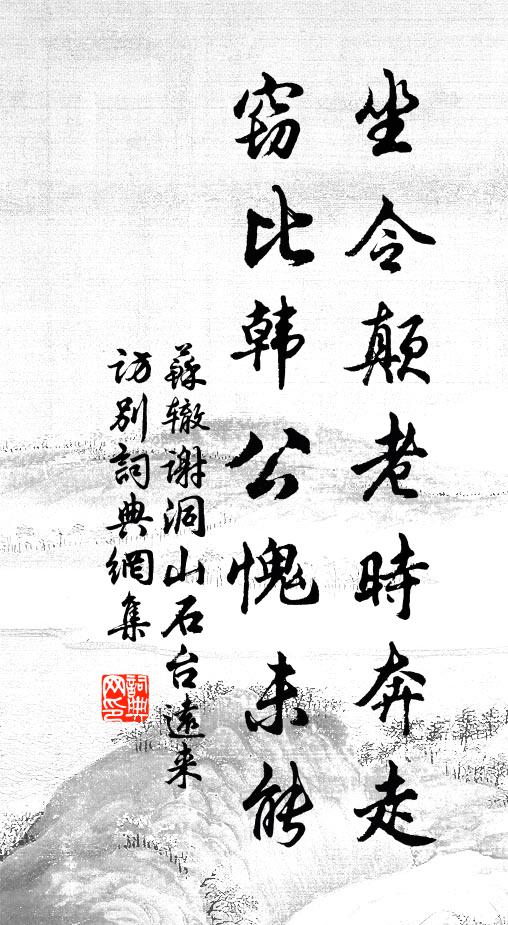 坐令颠老時奔走
窃比韩公愧未能
蘇辙谢洞山石台遠来
访别詞典網集
詞典
网印